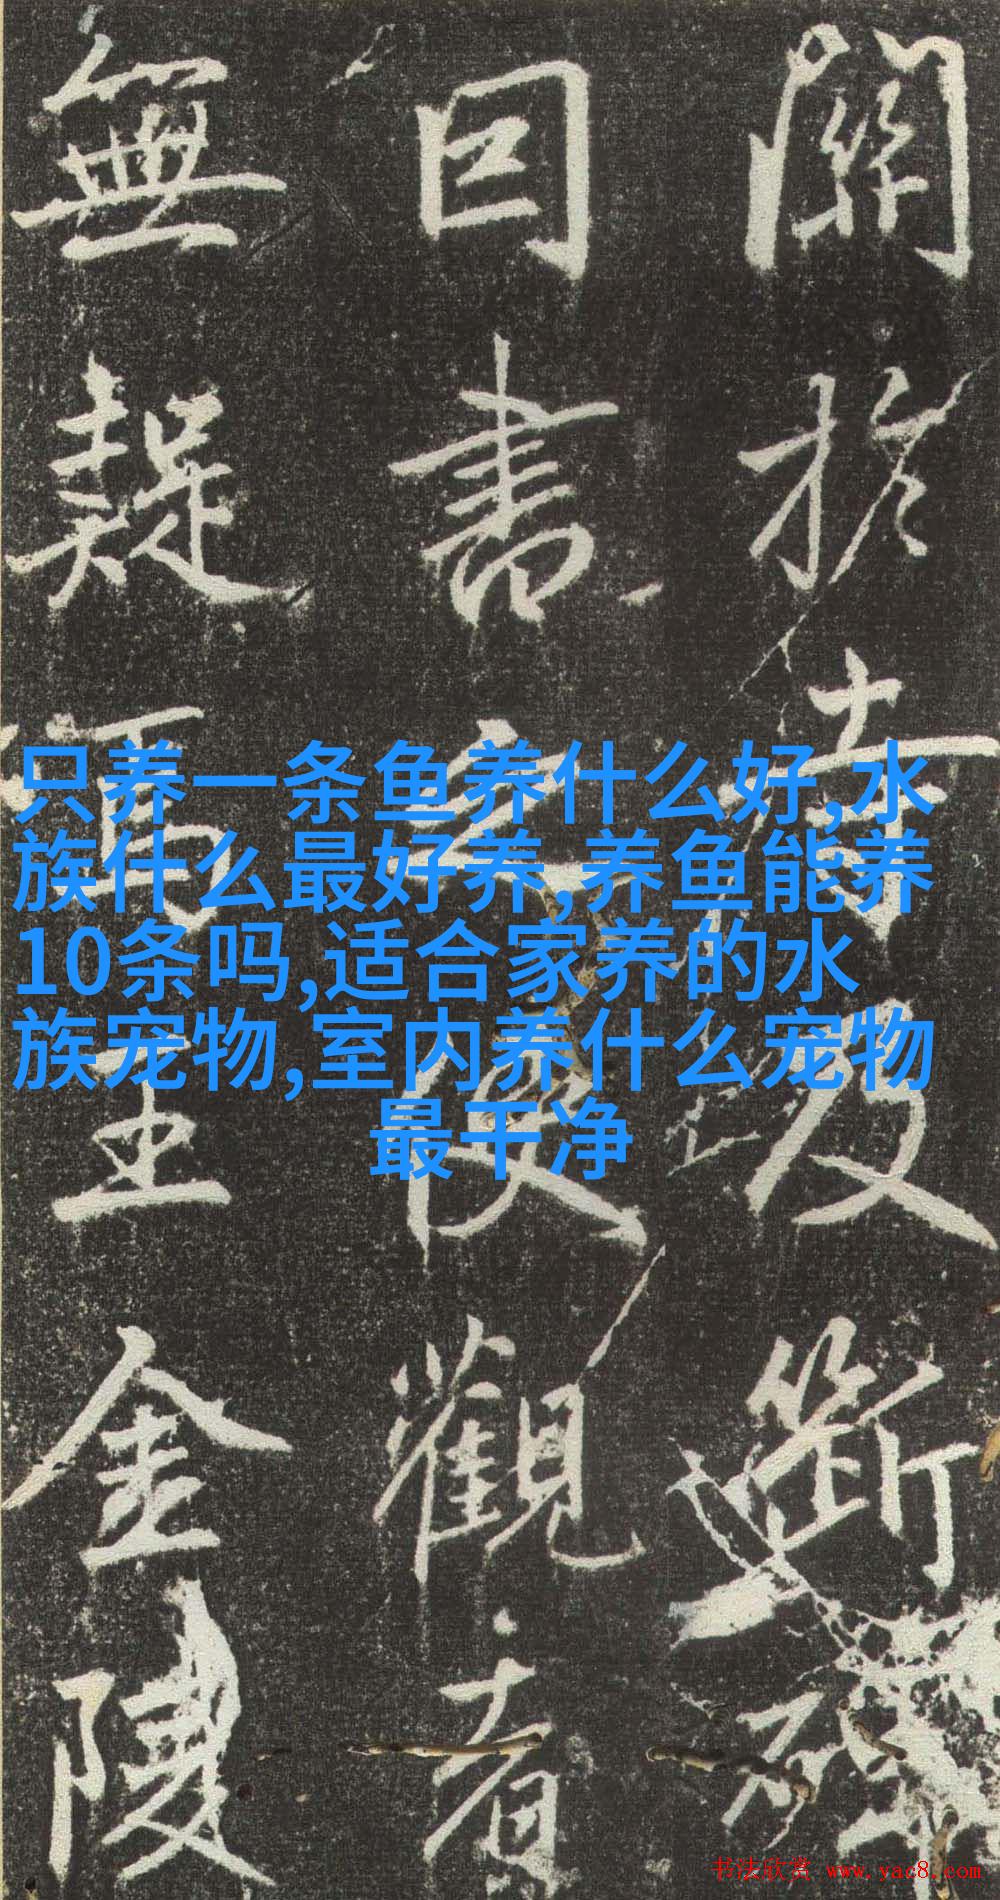 關於寺及斷
日書之觀者
無疑焉王金陵
只养一条鱼养什么好,水
族什么最好养,养鱼能养
10条吗,适合家养的水
族宠物,室内养什么宠物
最干净
书法欣赏 www.yac8.com